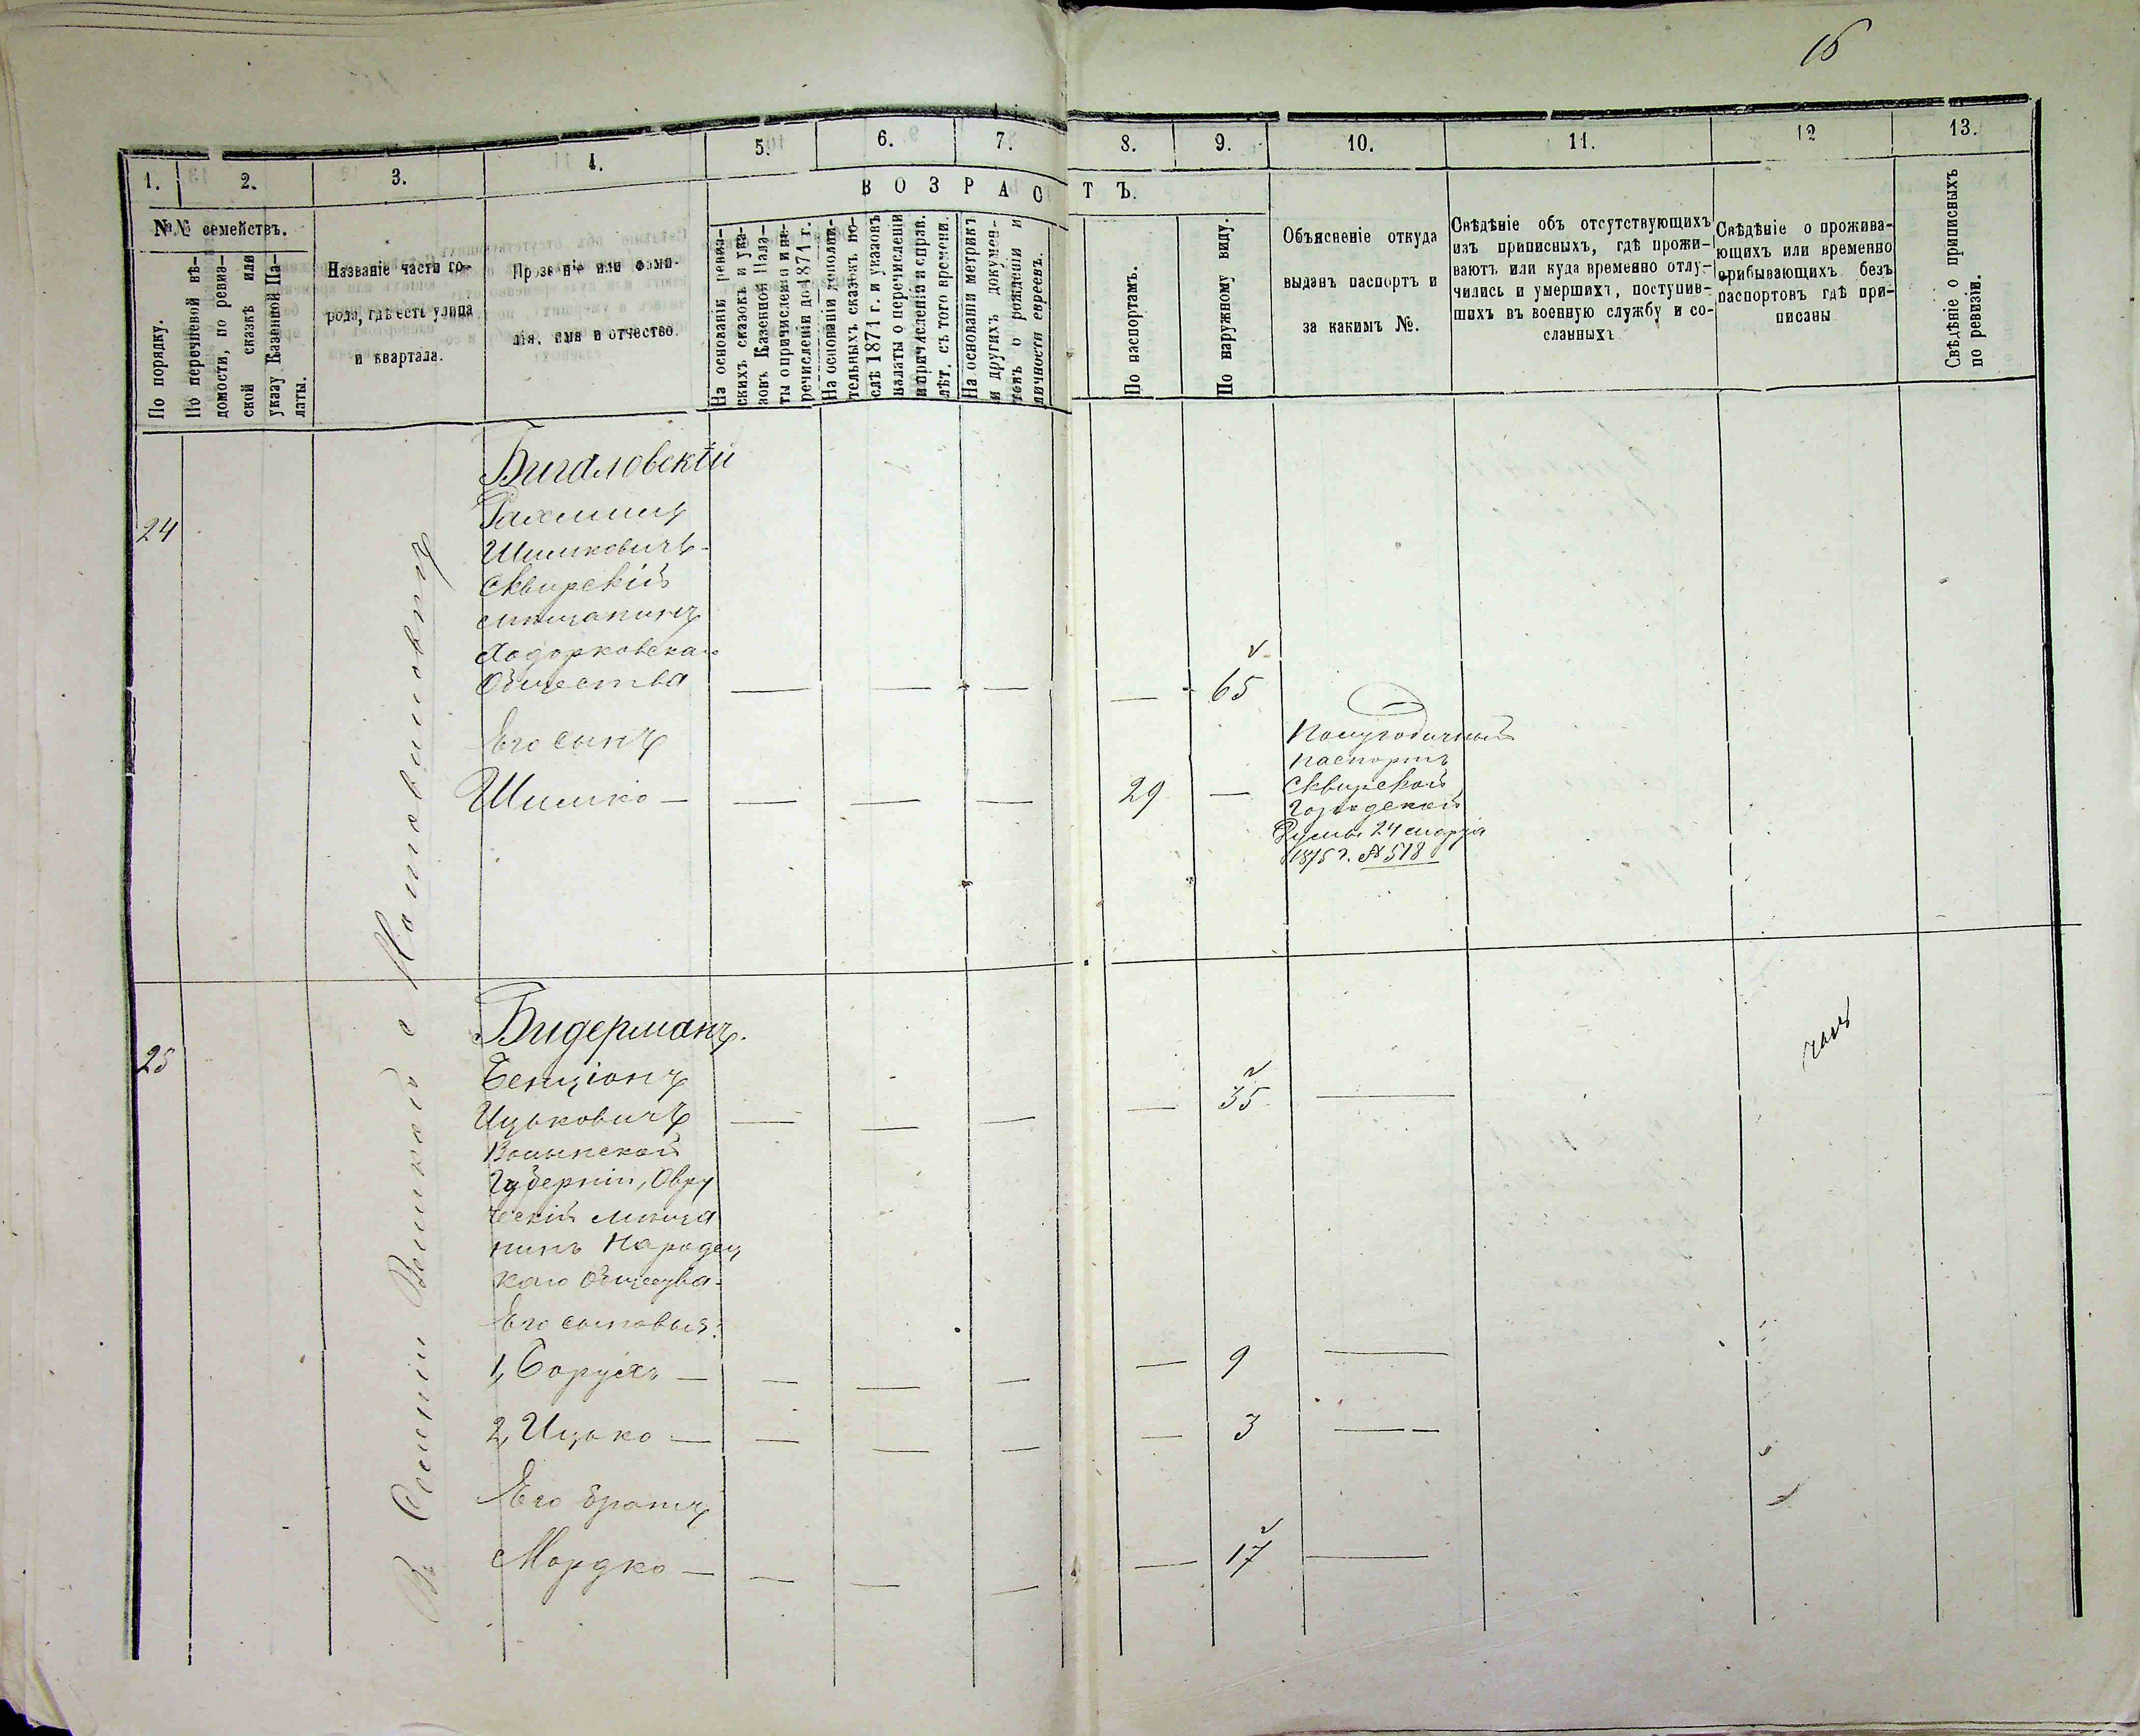 16
1. 2. 3. 4. 5. 6. 7. 8. 9. 10. 11. 12 13.
№№ семействъ.
По порядку.
По перечневой вѣ-
домости, по ревиз-
ской сказкѣ или
указу Казенной Па-
латы.
Названіе части го-
рода, гдѣ есть улица
и квартала.
Прозваніе или фами-
лія, имя и отчество.
ВОЗРАСТЪ.
На основаніи ревиз-
скихъ сказокъ и ука-
зовъ Казенной Пала-
ты о причисленіи и пе-
речисленіи до 1871 г.
На основаніи дополни-
тельныхъ сказокъ по-
слѣ 1871 г. и указовъ
палаты о перечисленіи
и причисленіи и справ.
лѣт. съ того времени.
На основаніи метрикъ
и другихъ докумен-
товъ о рожденіи и
личности евреевъ.
По паспортамъ.
По наружному виду.
Объясненіе откуда
выданъ паспортъ и
за какимъ №.
Свѣдѣніе объ отсутствующихъ
изъ приписныхъ, гдѣ прожи-
ваютъ или куда временно отлу-
чились и умершихъ, поступив-
шихъ въ военную службу и со-
сланныхъ
Свѣдѣніе о прожива-
ющихъ или временно
прибывающихъ безъ
паспортовъ гдѣ при-
писаны
Свѣдѣніе о приписныхъ
по ревизіи.
24
Бигаловскій
Рахмиль
Шимковичъ
Сквирскій
мѣщанинъ
Ходорковскаго
Общества — — — — 65
Его сынъ
Шимко — — — — 29 —
Полугодичный
паспортъ
Сквирской
Городской
Думы 24 марта
1875 г. № 518
25
Бидерманъ.
Бенціонъ
Ицьковичъ — — — — 35 —
Волынской
Губерніи, Овру
ческій мѣща
нинъ Народиц
каго Общества
Его сыновья:
1, Борухъ — — — — — 9 —
2, Ицько — — — — — 3 — —
Его братъ
Мордко — — — — — 17 —